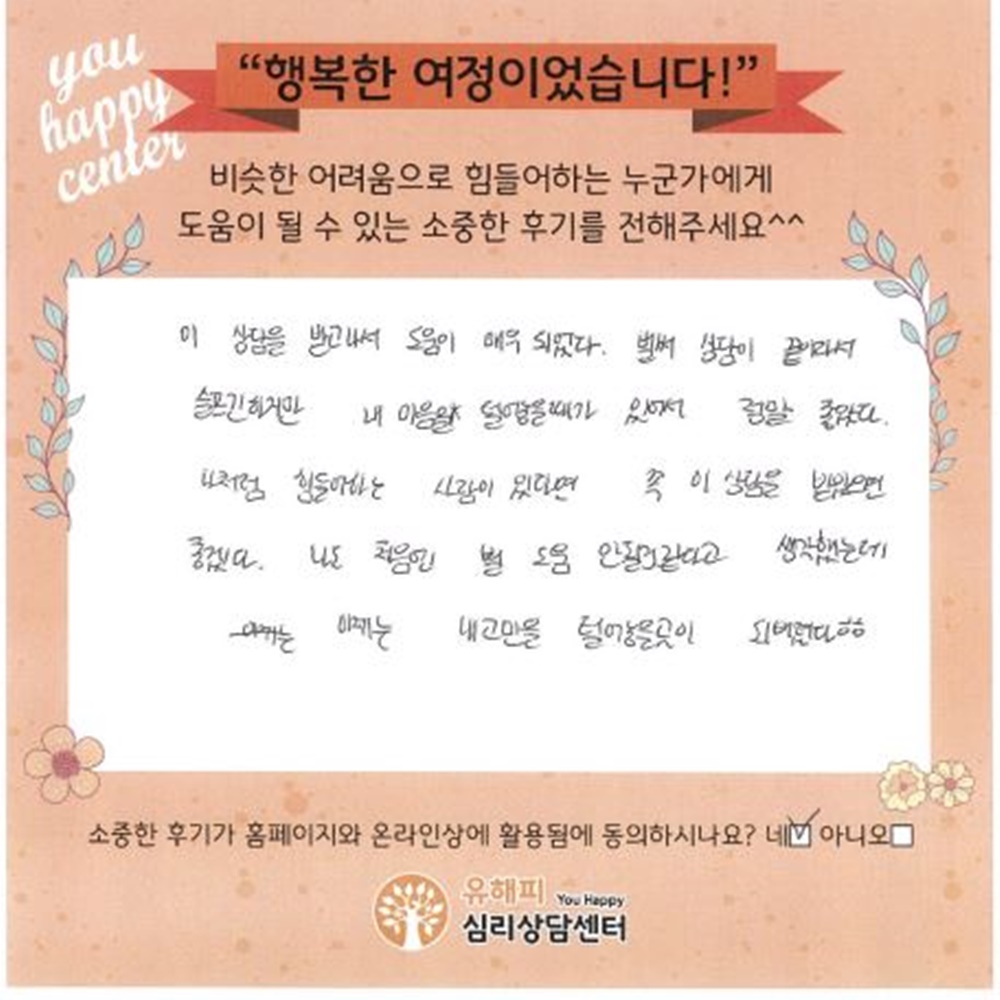 you
happy
center
“행복한 여정이었습니다!”
비슷한 어려움으로 힘들어하는 누군가에게
도움이 될 수 있는 소중한 후기를 전해주세요^^
이 상담을 받고나서 도움이 매우 되었다. 벌써 상담이 끝이라서
슬프긴하지만 내 마음을 털어놓을때가 있어서 정말 좋았다.
나처럼 힘들어하는 사람이 있다면 꼭 이 상담을 받았으면
좋겠다. 나도 처음엔 별 도움 안될것같다고 생각했는데
이제는 내고민을 털어놓을곳이 되버렸다ㅎㅎ
소중한 후기가 홈페이지와 온라인상에 활용됨에 동의하시나요? 네 아니오
유해피 You Happy
심리상담센터